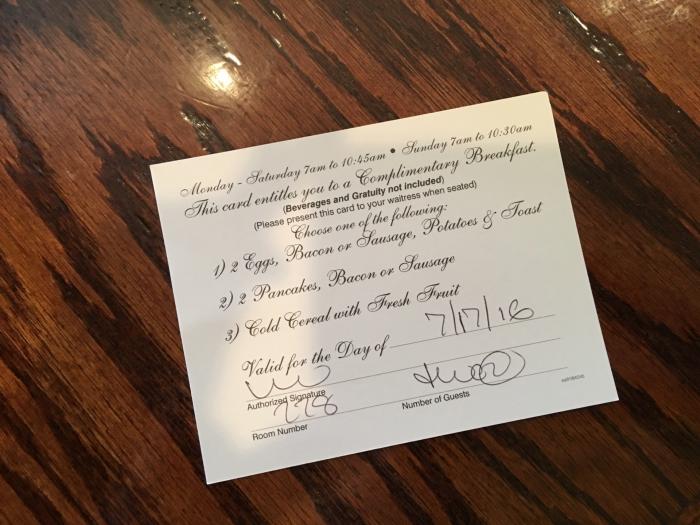 Monday - Saturday 7am to 10:45am • Sunday 7am to 10:30am
This card entitles you to a Complimentary Breakfast.
(Beverages and Gratuity not included)
(Please present this card to your waitress when seated)
Choose one of the following:
1) 2 Eggs, Bacon or Sausage, Potatoes & Toast
2) 2 Pancakes, Bacon or Sausage
3) Cold Cereal with Fresh Fruit
Valid for the Day of 7/17/16
Authorized Signature
Number of Guests
778
Room Number